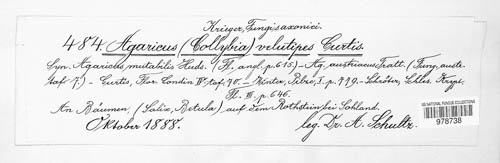 Krieger, Fungi saxonici.
484. Agaricus (Collybia) velutipes Curtis.
Syn. Agaricus mutabilis Huds. (Fl. angl. p. 615). – Ag. austriacus Tratt. (Fung. austr.
taf. 7.) – Curtis, Flor. Londin IV. taf. 70. – Winter, Pilze, I. p. 779. – Schröter, Schles. Krypt.
Fl. III. p. 646.
An Bäumen, (Salix, Betula) auf dem Rothstein bei Sohland.
Oktober 1888.
leg. Dr. A. Schultz.
US NATIONAL FUNGUS COLLECTIONS
978738